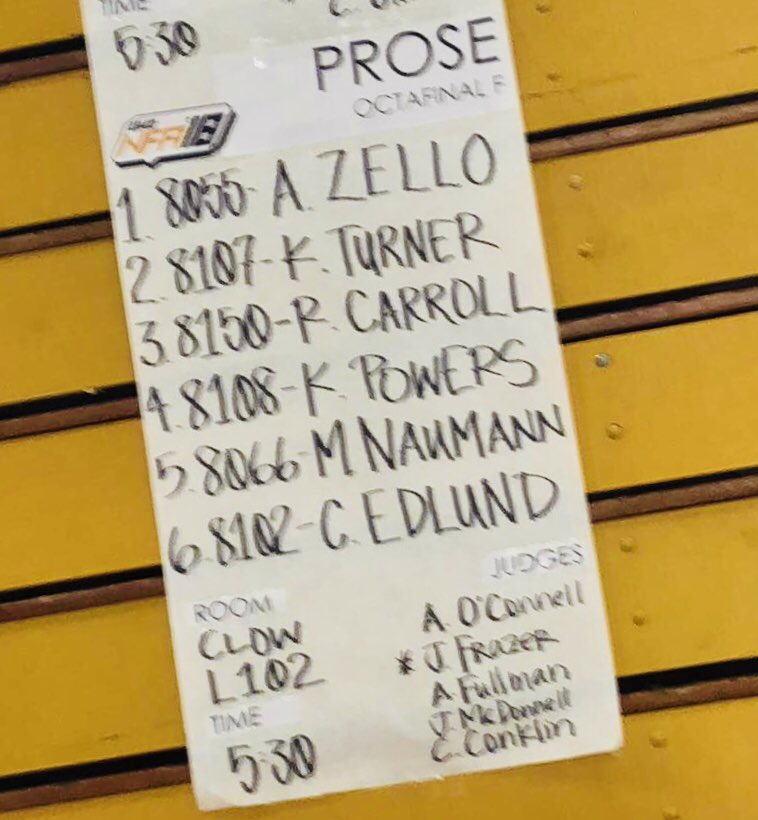 TIME
5:30
PROSE
OCTAFINAL F
NFA 18
1. 8055- A. ZELLO
2. 8107- K. TURNER
3. 8150- R. CARROLL
4. 8108- K. POWERS
5. 8066- M NAUMANN
6. 8102- C. EDLUND
ROOM
CLOW
L102
TIME
5:30
JUDGES
A. O'Connell
* J. Frazer
A. Fullman
J. McDonnell
C. Conklin